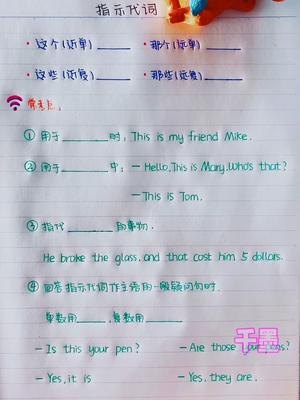 指示代词
·这个(近单)______ ·那个(远单)______
·这些(近复)______ ·那些(远复)______
常考点:
① 用于______时, This is my friend Mike.
② 用于______中: — Hello, This is Mary. Who's that?
— This is Tom.
③ 指代______的事物.
He broke the glass, and that cost him 5 dollars.
④ 回答指示代词作主语用一般疑问句时.
单数用______, 复数用______
— Is this your pen? — Are those your pens?
— Yes, it is — Yes, they are.
千墨